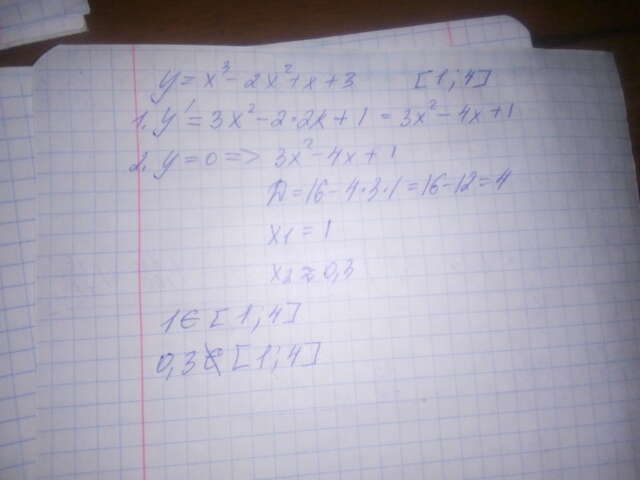 y = x³ - 2x² + x + 3 [1; 4]
1. y' = 3x² - 2·2x + 1 = 3x² - 4x + 1
2. y = 0 => 3x² - 4x + 1
D = 16 - 4·3·1 = 16 - 12 = 4
x1 = 1
x2 ≈ 0,3
1 ∈ [1; 4]
0,3 ∉ [1; 4]